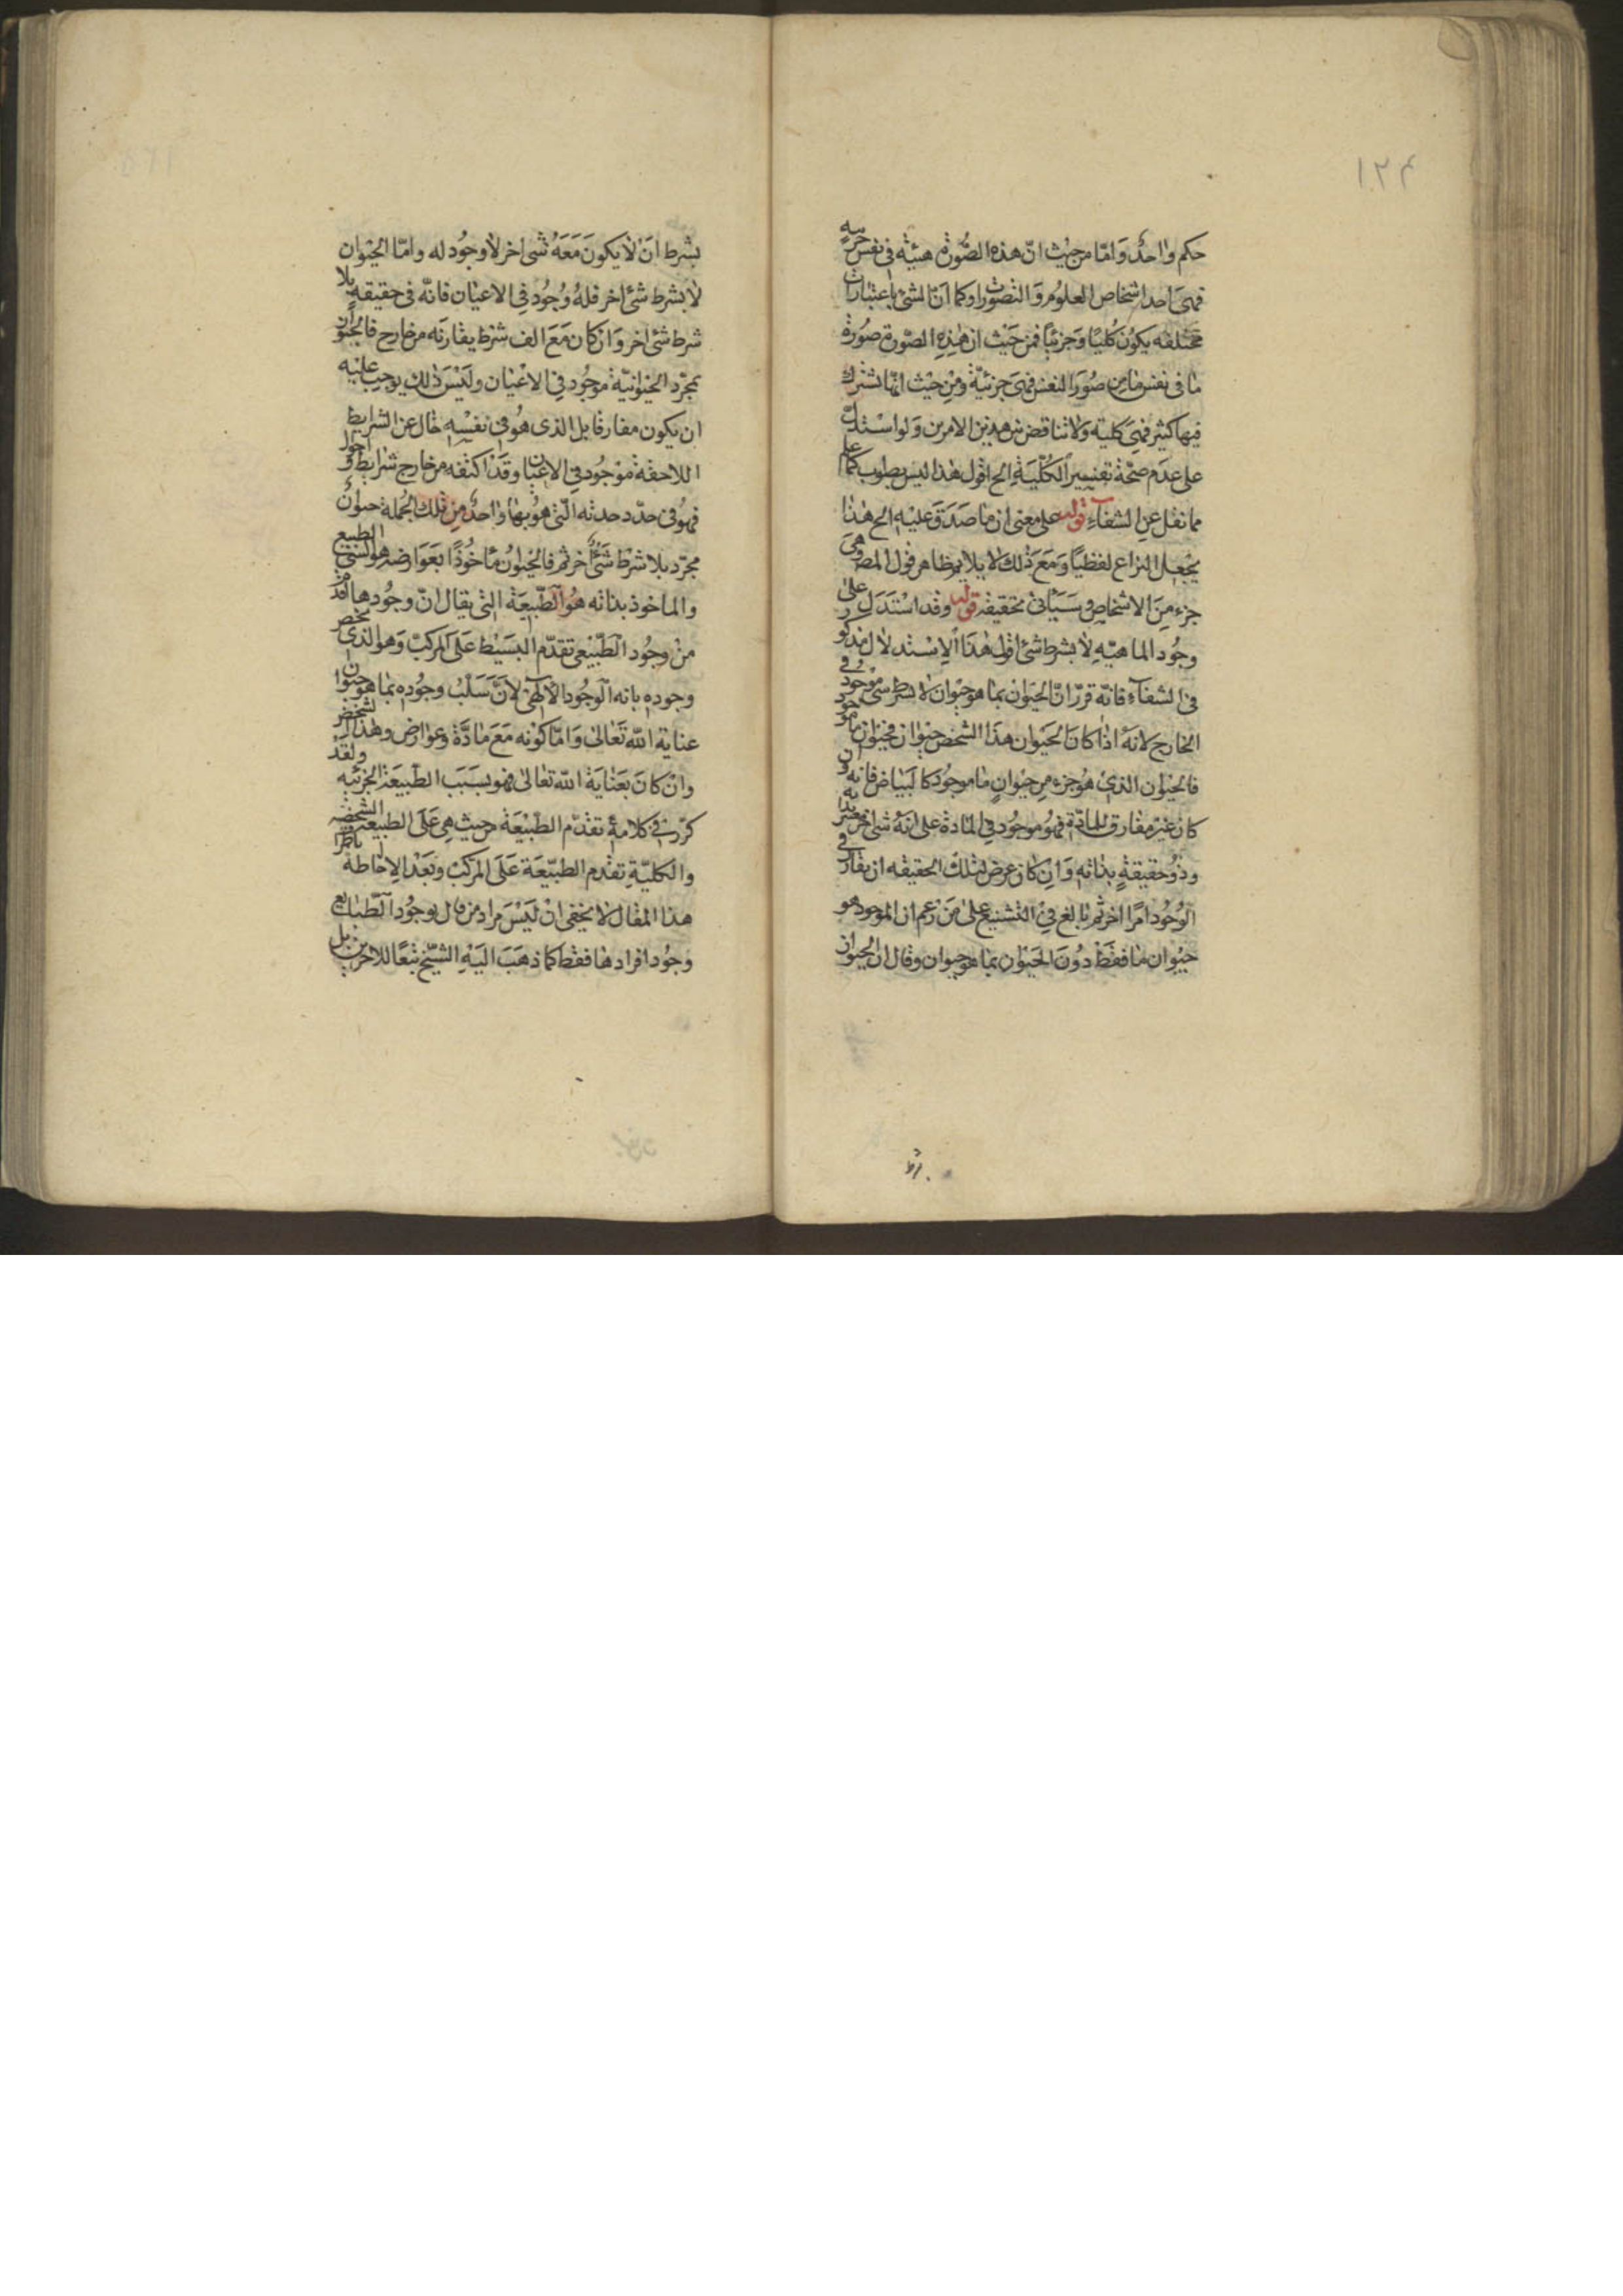 ١٢٤
حكم واحد وامّا من حيث انّ هذه الصّورة هيئة فى نفس جزئيه
فهى احد اشخاص العلوم والتصورات وكما انّ الشئ باعتبارات
مختلفه يكون كليًا وجزئيًا فمن حيث ان هذه الصّورة صورة
ما فى نفس ما من صور النفس فهى جزئيّة ومن حيث انّها تشترك
فيها كثير فهى كليه ولا تناقض بين هذين الامرين ولو استدلّ
على عدم صحّة تفسير الكلّية الخ اقول هذا ليس بصواب كما علم
مما نقل عن الشفاء قوله على معنى ان ما صدق عليه الخ هذا
يجعل النزاع لفظيًا ومع ذلك لا يلايم ظاهر قول المصـ وهى
جزء من الاشخاص وسيأتى تحقيقه قوله وقد استدل على
وجود الماهيّه لا بشرط شئ اقول هذا الاستدلال مذكور
فى الشفاء فانّه قرّر انّ الحيوان بما هو حيوان لا بشرط شئ موجود فى
الخارج لانه اذا كان الحيوان هذا الشخص حيوان ما فحيوان ما موجود
فالحيوان الذى هو جزء من حيوان ما موجود كالبياض فانه وان
كان غير مفارق للمادّة فهو موجود فى المادة على انه شئ اخر معتبر بذاته
وذو حقيقة بذاته وان كان عرض لتلك الحقيقه ان يقارن فى
الوجود امرًا اخر ثم بالغ فى التشنيع على من زعم ان الموجود هو
حيوان ما فقط دون الحيوان بما هو حيوان وقال ان الحيوان
بشرط ان لا يكون معه شئ اخر لا وجود له وامّا الحيوان
لا بشرط شئ اخر فله وجود فى الاعيان فانّه فى حقيقته بلا
شرط شئ اخر وان كان مع الف شرط يقارنه من خارج فالحيوان
بمجرّد الحيوانيّة موجود فى الاعيان وليس ذلك يوجب عليه
ان يكون مفارقا بل الذى هو فى نفسه خال عن الشرايط
اللاحقة موجود فى الاعيان وقد اكتنفه من خارج شرايط واحوال
فهو فى حدّ وحدته الّتى هو بها واحد من تلك الجملة حيوان
مجرّد بلا شرط شئ اخر ثم فالحيوان مأخوذًا بعوارضه هو الشئ الطبيعى
والماخوذ بذاته هو الطّبيعة التى يقال انّ وجودها اقدم
من وجود الطّبيعى تقدّم البسيط على المركّب وهو الذى يخص
وجوده بانه الوجود الالهى لانّ سبب وجوده بما هو حيوان
عناية الله تعالى وامّا كونه مع مادّة وعوارض وهذا الشخص
وان كان بعناية الله تعالى فهو بسبب الطّبيعة الجزئيه ولقد
كرّر فى كلامه تقدّم الطّبيعة من حيث هى على الطبيعة الشخصيّه
والكليّة تقدم الطبيعة على المركّب وبعد الاحاطة باطراف
هذا المقال لا يخفى ان ليس مراد من قال بوجود الطّبايع
وجود افرادها فقط كما ذهب اليه الشّيخ تبعًا للاخرين بل